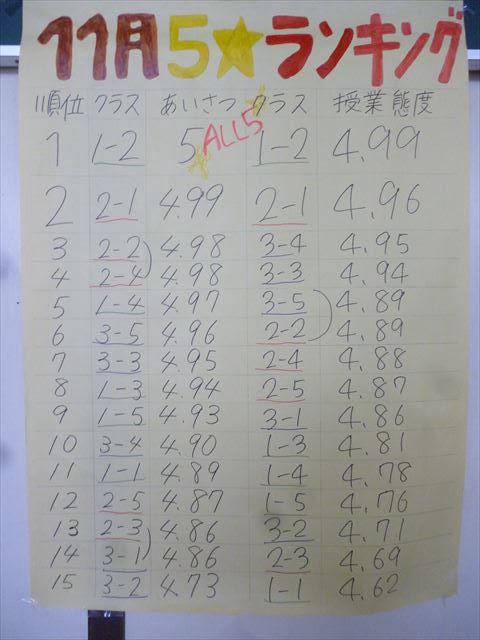 11月5★ランキング
順位 クラス あいさつ クラス 授業態度
ALL5
1 1-2 5 1-2 4.99
2 2-1 4.99 2-1 4.96
3 2-2 4.98 3-4 4.95
4 2-4 4.98 3-3 4.94
5 1-4 4.97 3-5 4.89
6 3-5 4.96 2-2 4.89
7 3-3 4.95 2-4 4.88
8 1-3 4.94 2-5 4.87
9 1-5 4.93 3-1 4.86
10 3-4 4.90 1-3 4.81
11 1-1 4.89 1-4 4.78
12 2-5 4.87 1-5 4.76
13 2-3 4.86 3-2 4.71
14 3-1 4.86 2-3 4.69
15 3-2 4.73 1-1 4.62